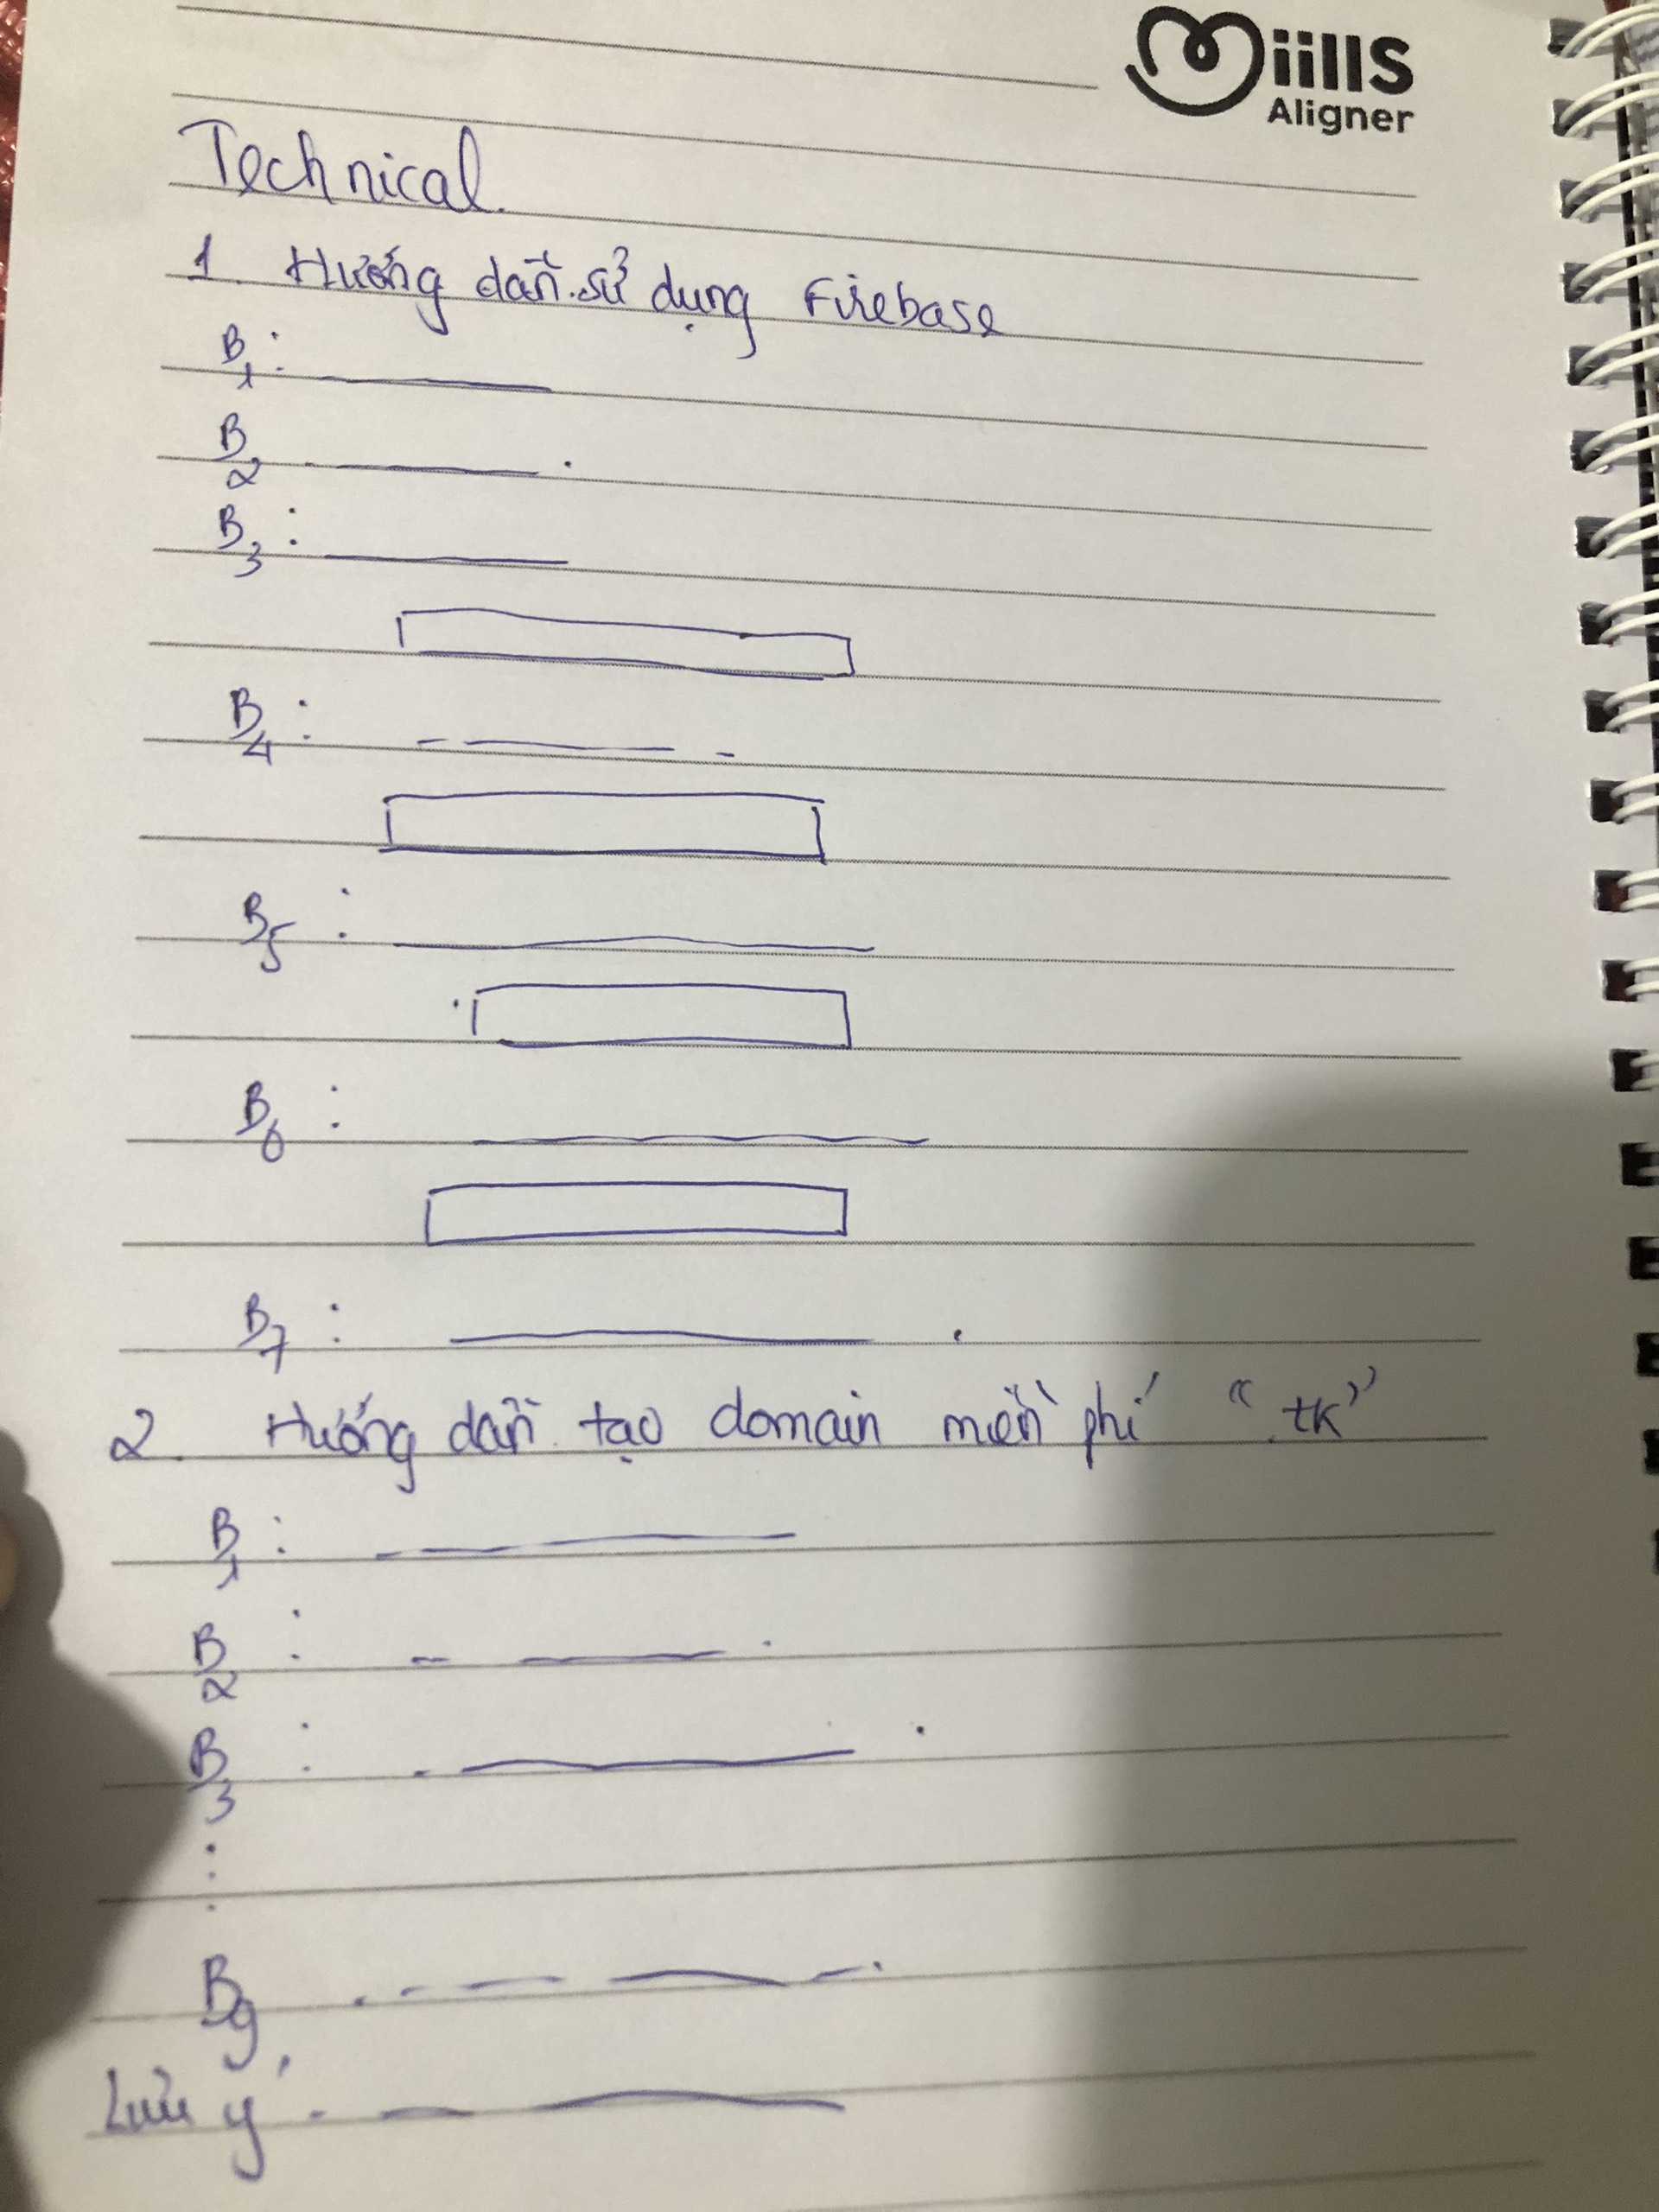 Miills
Aligner
Technical.
1. Hướng dẫn sử dụng Firebase
B1:
B2
B3:
B4:
B5:
B6:
B7:
2. Hướng dẫn tạo domain miễn phí ".tk"
B1:
B2:
B3:
B9
Lưu ý